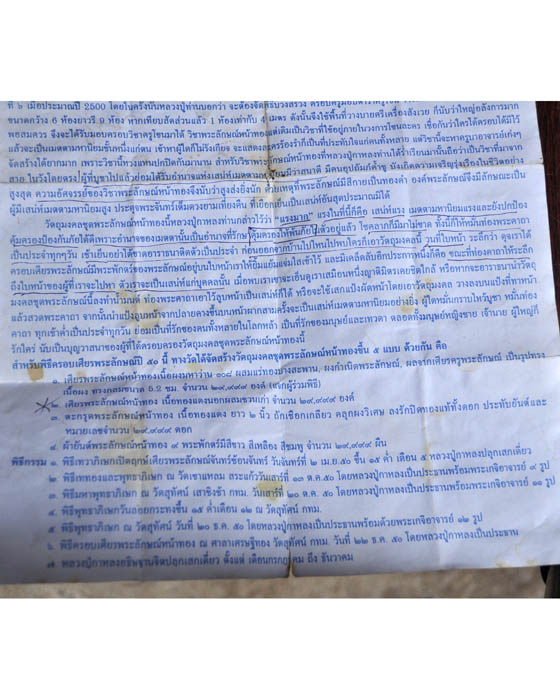 ที่ ๖ เมื่อประมาณปี 2500 โดยในครั้งนั้นหลวงปู่ท่านบอกว่า จะต้องจัด
ขนาดกว้าง 6 ห้องยาวรี 9 ห้อง หากเทียบสัดส่วนแล้ว 1 ห้องเท่ากับ 4 เมตร ดังนั้นจึงใช้พื้นที่วางบายศรีเครื่องสังเวย ก็นับว่าใหญ่อลังการมาก
พอสมควร จึงจะได้รับมอบครอบวิชาครูโขนมาได้ วิชาพระลักษณ์หน้าทองแต่เดิมเป็นวิชาที่ใช้อยู่ภายในวงการโขนละคร เชื่อกันว่าใครได้ครอบได้มีไว้
แล้วจะเป็นเมตตามหานิยมชั้นหนึ่งแก่ตน เข้าหาผู้ใดก็ไม่รังเกียจ
จัดสร้างได้ยากมาก เพราะวิชานี้หวงแหนปกปิดกันมานาน สำหรับวิชาพระลักษณ์หน้าทองที่หลวงปู่กาหลงท่านได้ร่ำเรียนมานั้นถือว่าเป็นวิชาที่เรามา
สาย ในโดยตรง
สูงสุด ความอัศจรรย์ของวิชาพระลักษณ์หน้าทองจึงนับว่าสูงส่งยิ่งนัก ด้วยเหตุที่พระลักษณ์มีสีกายเป็นทองคำ องค์พระลักษณ์จึงมีลักษณะเป็น
ผู้มีเสน่ห์เมตตามหานิยมสูง ประดุจพระจันทร์เต็มดวงยามเที่ยงคืน ที่เยือกเย็นเป็นเสน่ห์อันสุดประมาณได้
วัตถุมงคลชุดพระลักษณ์หน้าทองนี้หลวงปู่กาหลงท่านกล่าวไว้ว่า " แรงมาก" แรงในที่นี้ก็คือ เสน่ห์แรง เมตตามหานิยมแรงและยังปกป้อง
คุ้มครองป้องกันภัยได้ดีเพราะอำนาจของเมตตานั้นเป็นอำนาจที่รักษาคุ้มครองให้พ้นภัย มีตัวอยู่แล้ว โชคลาภก็มีมาไม่ขาด ทั้งนี้ก็ให้หมั่นท่องพระคาถา
เป็นประจำทุกๆวัน เช้าเย็นอย่าได้ขาดอาราธนาติดตัวเป็นประจำ ก่อนออกจากบ้านไปไหนไปพบใครก็เอาวัตถุมงคลนี้ วนที่ใบหน้า ระลึกว่า ดุจเราได้
ครอบเศียรพระลักษณ์มีพระพักตร์ของพระลักษณ์อยู่บนใบหน้าเราให้ยิ้มแย้มแจ่มใสเข้าไว้ และมีเคล็ดลับอีกประการหนึ่งก็คือ ขณะที่ท่องคาถาให้ระลึก
ถึงใบหน้าของผู้ที่เราจะไปหา
มงคลชุดพระลักษณ์นี้ลงทำน้ำมนต์ ท่องพระคาถาเอาไว้ลูบหน้าเป็นเสน่ห์ก็ได้ หรือจะใช้เสกแป้งผัดหน้าโดยเอาวัตถุมงคล วางลงบนแป้งที่ทาหน้า
แล้วสวดพระคาถา จากนั้นนำแป้งลูบหน้าจากปลายคางขึ้นบนหน้าผากสามครั้งจะเป็นเสน่ห์เมตตามหานิยมอย่างยิ่ง ผู้ใดหมั่นกราบไหว้บูชา หมั่นท่อง
คาถา ทุกเช้าค่ำเป็นประจำทุกวัน จะเป็นที่รักของคนทั้งหลายในโลกหล้า เป็นที่รักของมนุษย์และเทวดา ตลอดจนทั้งมนุษย์หญิงชาย เจ้านาย ผู้ใหญ่ก็
รักใคร่ นับเป็นบุญวาสนาของผู้ที่ได้ครอบครองวัตถุมงคลชุดพระลักษณ์หน้าทองนี้
สำหรับพิธีครอบเศียรพระลักษณ์ปี ๕๐ นี้ ทางวัดได้จัดสร้างวัตถุมงคลชุดพระลักษณ์หน้าทองขึ้น ๕ แบบ ด้วยกัน คือ
๑. เศียรพระลักษณ์หน้าทองเนื้อผงมหาว่าน ๑๐๘ ผสมแร่ทองบางสะพาน, ผงก้าเนิดพระลักษณ์, ผลจากเศียรครูพระลักษณ์ เป็นรูปทรง
เนื้อผง ทรงกลมขนาด 5.2 ซม. จำนวน ๒๙,๙๙๙ องค์ (แจกผู้ร่วมพิธี)
๒. เศียรพระลักษณ์หน้าทอง เนื้อทองแดงนอกผสมชวนเก่า จำนวน ๒๙,๙๙๙ องค์
๓. ตะกรุดพระลักษณ์หน้าทอง เนื้อทองแดง ยาว ๒ นิ้ว ถักเชือกเกลียว คลุกผงวิเศษ ลงรักปิดทองแท้ทั้งดอก ประทับยันต์และ
หมายเลขจำนวน ๒๙,๙๙๙ ดอก
๔. ผ้ายันต์พระลักษณ์หน้าทอง ๙ พระพักตร์มีสีขาว สีเหลือง สีชมพู จำนวน ๒๙,๙๙๙ ผืน
พิธีกรรม ๑. พิธีเทวาภิเษกเปิดฤกษ์เศียรพระลักษณ์จันทร์ซ้อนจันทร์ วันจันทร์ที่ ๒ เม.ย.๕๐ ขึ้น ๑๕ ค่ำ เดือน ๕ หลวงปู่กาหลงปลุกเสกเดี่ยว
๒. พิธีเททองและพุทธาภิเษก ณ วัดเขาแหลม สระแก้ววันเสาร์ที่ ๑๓ ต.ค. ๕๐ โดยหลวงปู่กาหลงเป็นประธานพร้อมพระเกจิอาจารย์ ๙ รูป
๓. พิธีมหาพุทธาภิเษก ณ วัดสุทัศน์ เสาชิงช้า กทม. วันเสาร์ที่ ๒๐ ต.ค. ๕๐ โดยหลวงปู่กาหลงเป็นประธานพร้อมพระเกจิอาจารย์ ๑๖ รูป
๔. พิธีพุทธาภิเษกวันลอยกระทงขึ้น ๑๕ ค่ำเดือน ๑๒ ณ วัดสุทัศน์ กทม.
๕. พิธีพุทธาภิเษก ณ วัดสุทัศน์ วันที่ ๒๐ ธ.ค. ๕๐ โดยหลวงปู่กาหลงเป็นประธานพร้อมด้วยพระเกจิอาจารย์ ๑๒ รูป
๖. พิธีครอบเศียรพระลักษณ์หน้าทอง ณ ศาลาเศรษฐีทอง วัดสุทัศน์ กทม. วันที่ ๒๒ ธ.ค. ๕๐ โดยหลวงปู่กาหลงเป็นประธาน
๗. หลวงปู่กาหลงอธิษฐานจิตปลุกเสกเดี่ยว ตั้งแต่ เดือนกรกฎาคม ถึง ธันวาคม